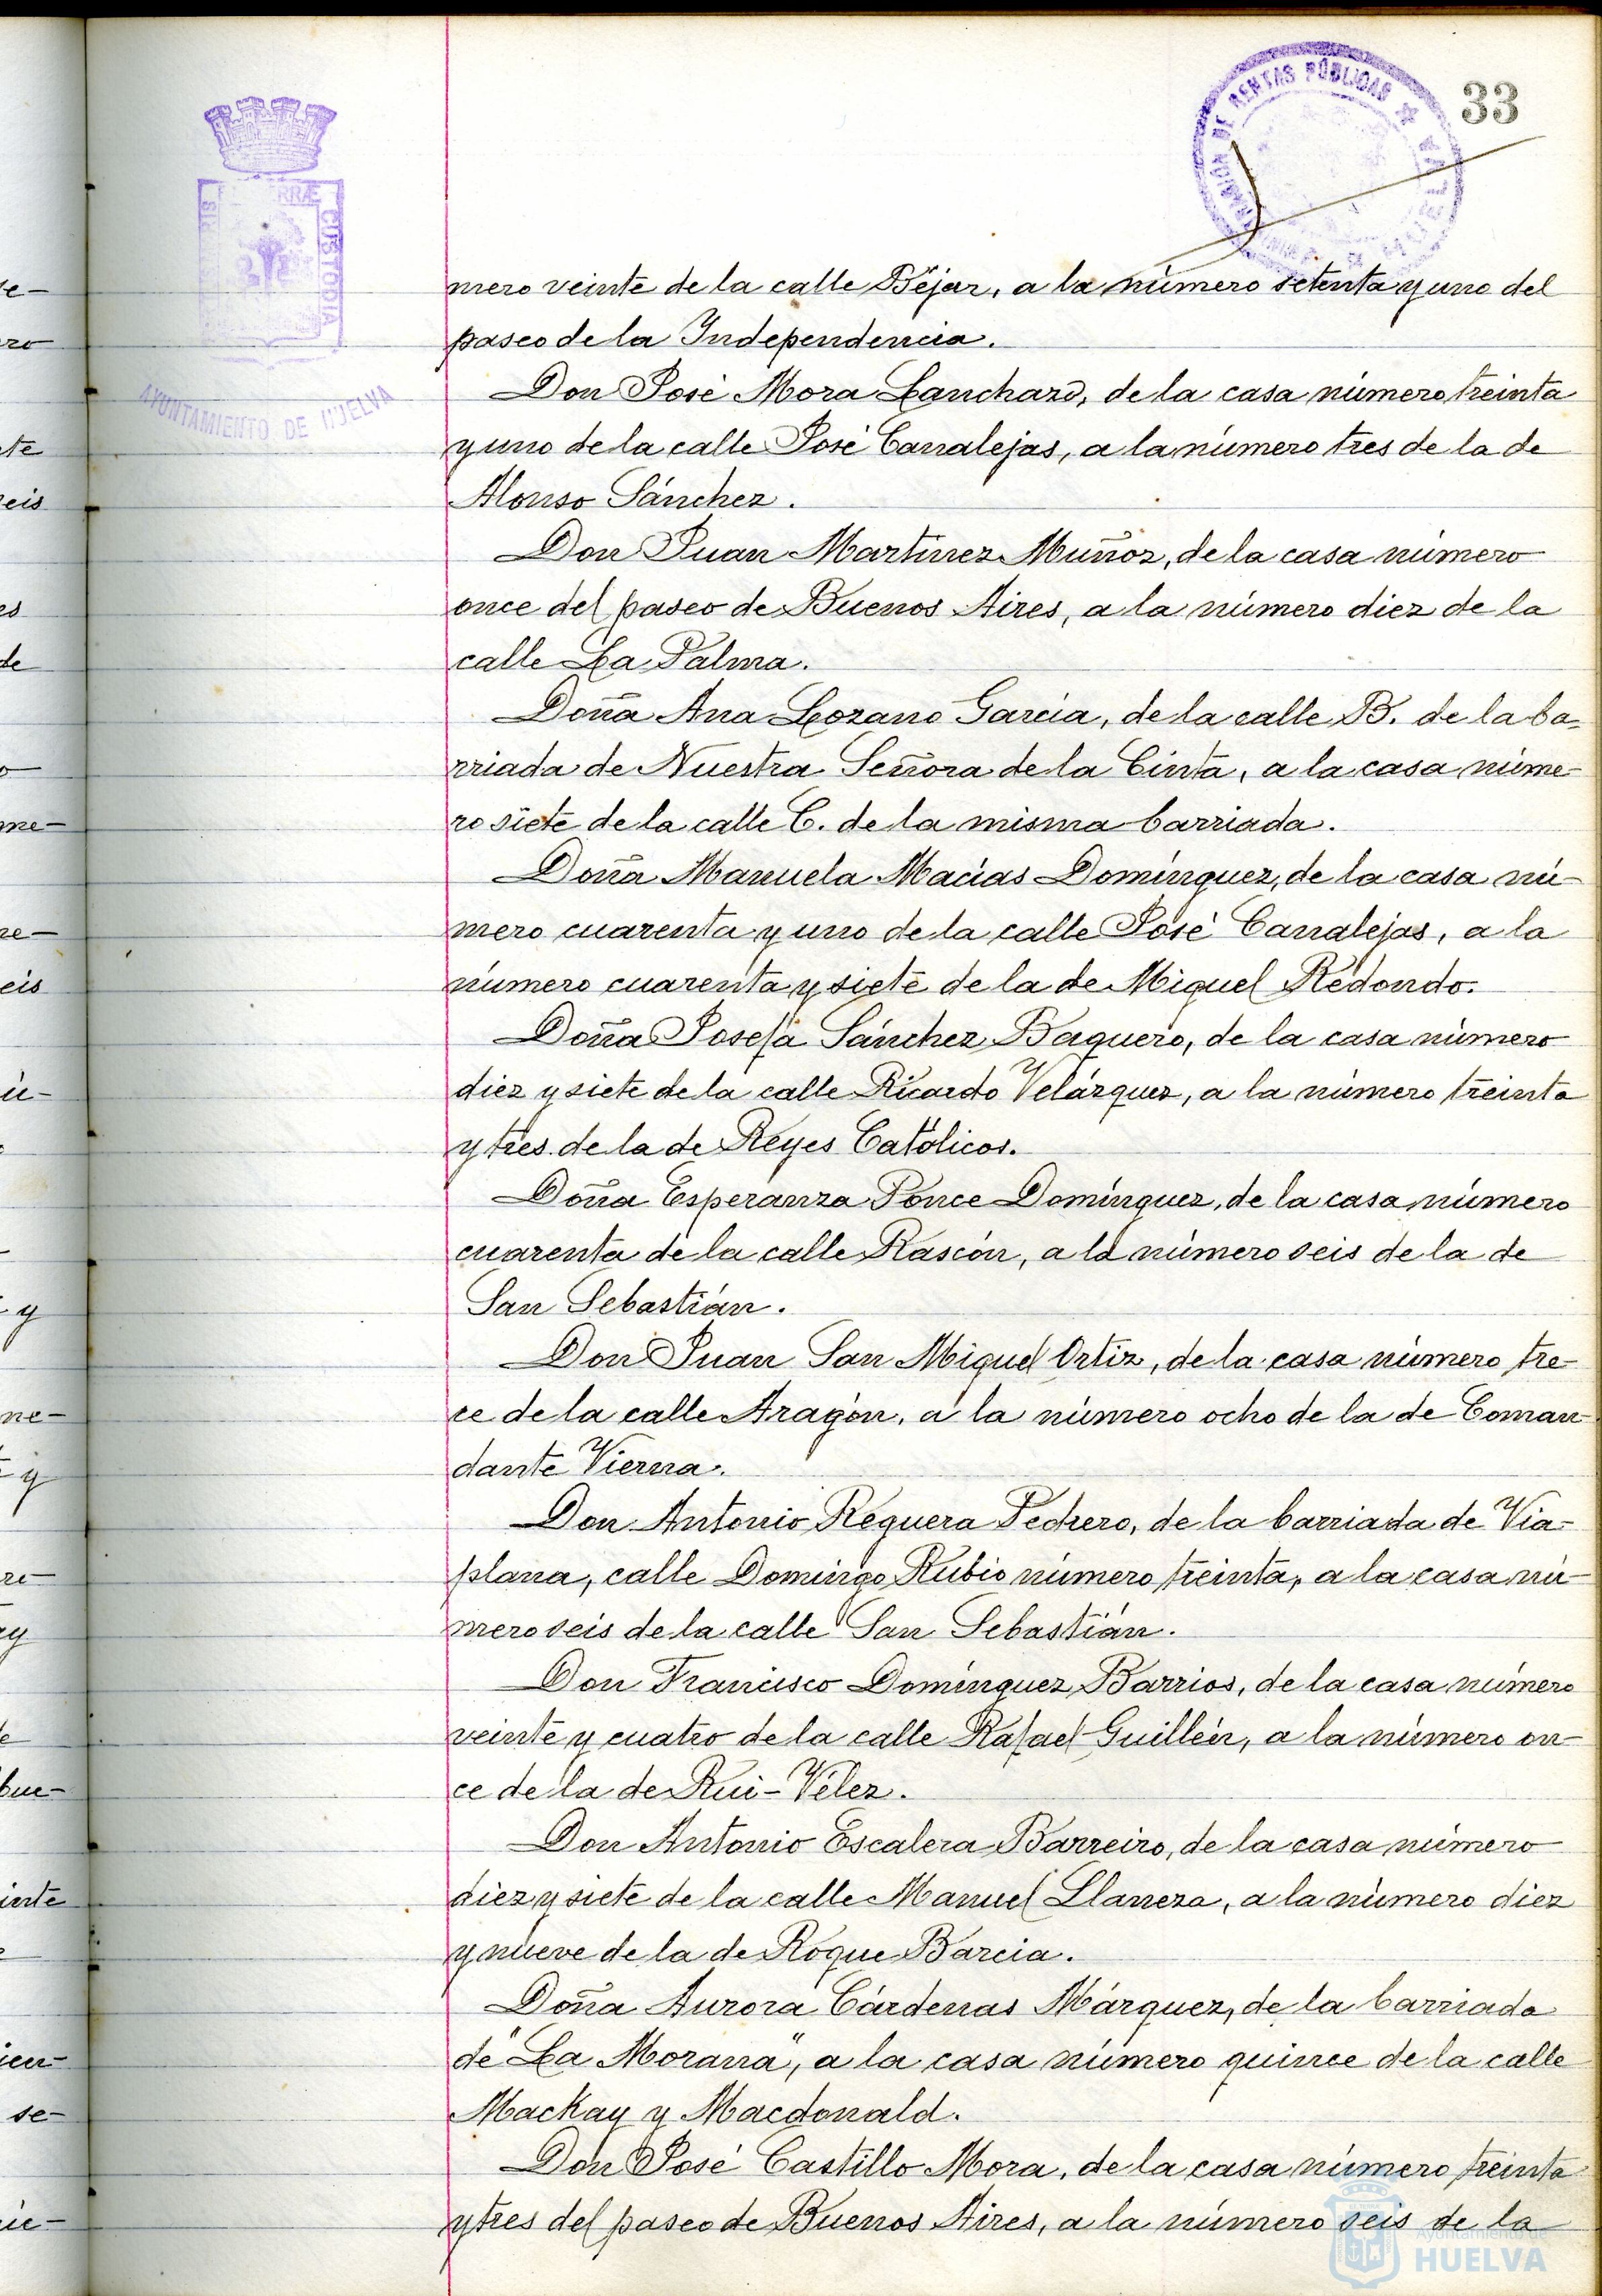 33
RENTAS PÚBLICAS
CUSTODIA
AYUNTAMIENTO DE HUELVA
mero veinte de la calle Béjar, a la número setenta y uno del
paseo de la Independencia.
Don José Mora Lanchazo, de la casa número treinta
y uno de la calle José Canalejas, a la número tres de la de
Alonso Sánchez.
Don Juan Martínez Muñoz, de la casa número
once del paseo de Buenos Aires, a la número diez de la
calle La Palma.
Doña Ana Lozano García, de la calle B. de la ba-
rriada de Nuestra Señora de la Cinta, a la casa núme-
ro siete de la calle C. de la misma barriada.
Doña Manuela Macías Domínguez, de la casa nú-
mero cuarenta y uno de la calle José Canalejas, a la
número cuarenta y siete de la de Miguel Redondo.
Doña Josefa Sánchez Baquero, de la casa número
diez y siete de la calle Ricardo Velázquez, a la número treinta
y tres de la de Reyes Católicos.
Doña Esperanza Ponce Domínguez, de la casa número
cuarenta de la calle Rascón, a la número seis de la de
San Sebastián.
Don Juan San Miguel Ortiz, de la casa número tre-
ce de la calle Aragón, a la número ocho de la de Coman-
dante Vierna.
Don Antonio Reguera Pechero, de la barriada de Via-
plana, calle Domingo Rubio número treinta, a la casa nú-
mero seis de la calle San Sebastián.
Don Francisco Domínguez Barrios, de la casa número
veinte y cuatro de la calle Rafael Guillén, a la número on-
ce de la de Rui-Vélez.
Don Antonio Escalera Barreiro, de la casa número
diez y siete de la calle Manuel Llaneza, a la número diez
y nueve de la de Roque Barcia.
Doña Aurora Cárdenas Márquez, de la barriada
de "La Morana", a la casa número quince de la calle
Mackay y Macdonald.
Don José Castillo Mora, de la casa número treinta
y tres del paseo de Buenos Aires, a la número seis de la
Ayuntamiento de
HUELVA